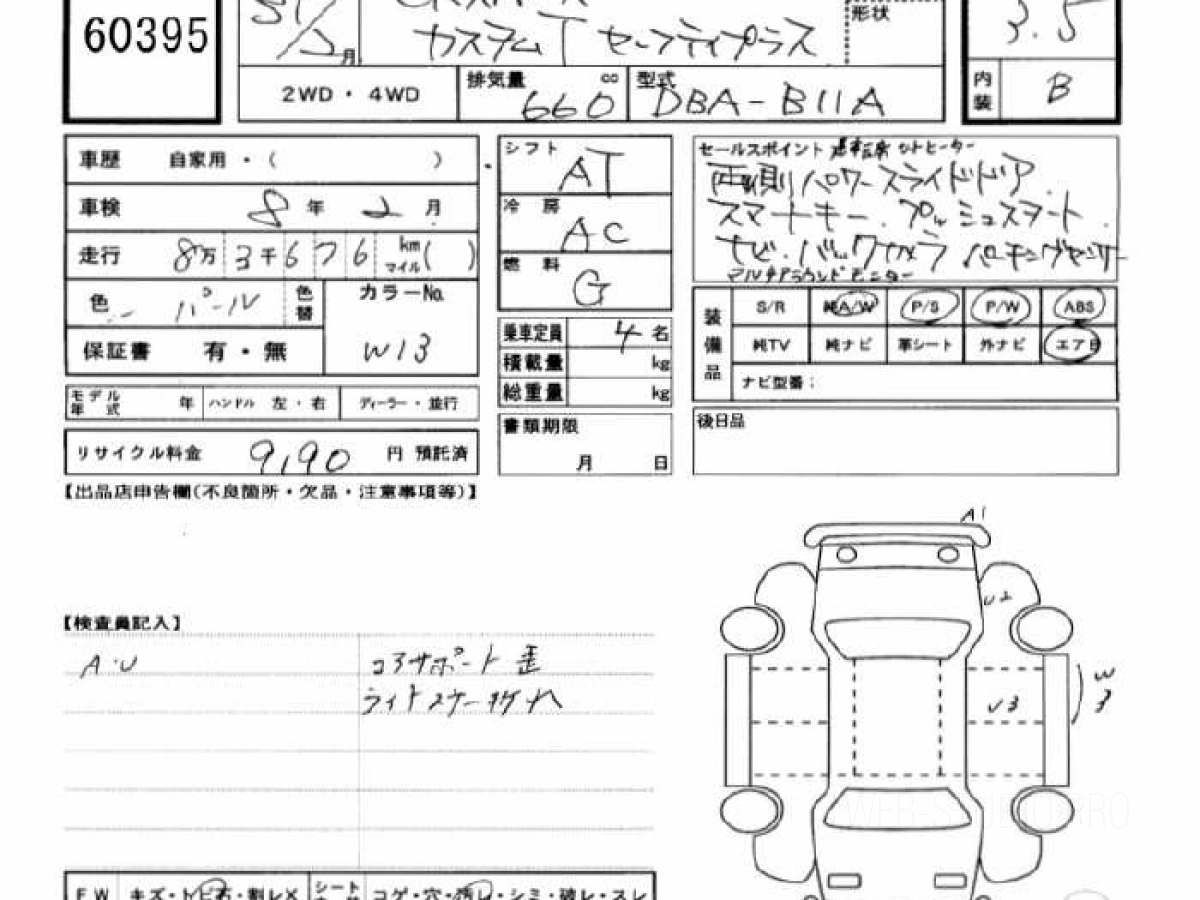 60395
31/2月
カスタムT セーフティプラス
形状
3.5
2WD・4WD
排気量 cc 660
型式 DBA-B11A
内装 B
車歴 自家用・( )
車検 8年 2月
走行 8万3千676 km マイル( )
色 パール 色替
カラーNo. W13
保証書 有・無
モデル年式 年 ハンドル 左・右 ディーラー・並行
リサイクル料金 9,190 円 預託済
シフト AT
冷房 AC
燃料 G
乗車定員 4 名
積載量 kg
総重量 kg
書類期限
月 日
セールスポイント 運転席シートヒーター
両側パワースライドドア
スマートキー.プッシュスタート.
ナビ.バックカメラ パーキングセンサー
マルチアラウンドモニター
装備品 S/R 純A/W P/S P/W ABS
純TV 純ナビ 革シート 外ナビ エアB
ナビ型番:
後日品
【出品店申告欄(不良箇所・欠品・注意事項等)】
【検査員記入】
A・U コアサポート歪
A1
U2
U3
W3
WEB-
FW キズ・トビ石・割レX シート コゲ・穴・汚レ・シミ・破レ・スレ